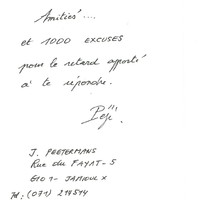 Amitiés....
et 1000 EXCUSES
pour le retard apporté
à te répondre.
Pej.
J. PEETERMANS
Rue du FAYAT-5
6101- JAMIOULX
Tél: (071) 218514